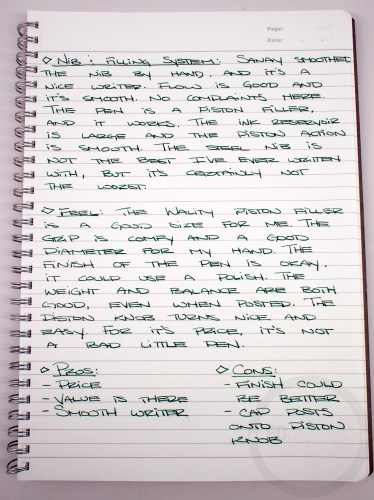 Page:
Date:
◇ Nib & Filling System: Sanay smoothed
the nib by hand, and it's a
nice writer. Flow is good and
it's smooth. No complaints here
The pen is a piston filler,
and it works. The ink reservoir
is large and the piston action
is smooth. The steel nib is
not the best I've ever written
with, but it's certainly not
the worst.
◇ Feel: The Wality piston filler
is a good size for me. The
grip is comfy and a good
diameter for my hand. The
finish of the pen is okay,
it could use a polish. The
weight and balance are both
good, even when posted. The
piston knob turns nice and
easy. For it's price, it's not
a bad little pen.
◇ Pros:
- Price
- Value is there
- Smooth writer
◇ Cons:
- Finish could
be better
- Cap posts
onto piston
knob